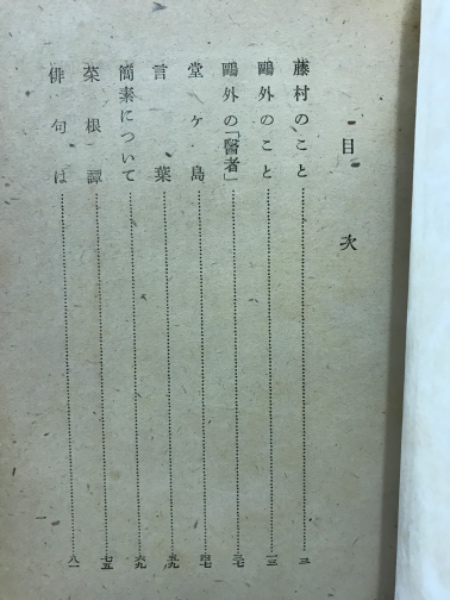 目次
藤村のこと 三
鷗外のこと 一三
鷗外の「醫者」 三七
堂ヶ島 四七
言葉 五九
簡素について 六九
菜根譚 七五
俳句は 八一
一